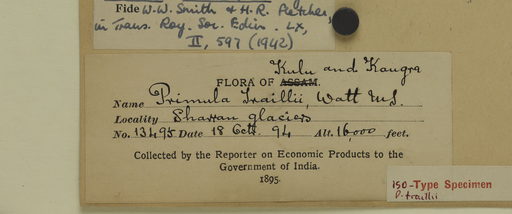 Fide W.W. Smith & H.R. Fletcher,
in Trans. Roy. Soc. Edin. LX,
II, 597 (1942)
Kulu and Kangra
FLORA OF ASSAM.
Name Primula Traillii, Watt MS.
Locality Sharran glaciers
No. 13495 Date 18 Octr. 94 Alt. 16,000 feet.
Collected by the Reporter on Economic Products to the
Government of India.
1895.
ISO-Type Specimen
P. traillii